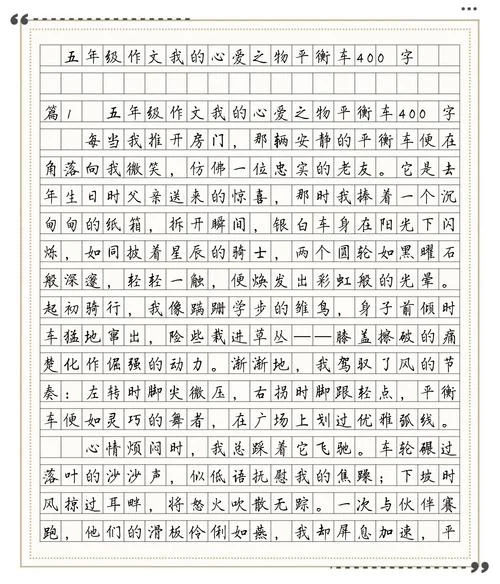 五年级作文我的心爱之物平衡车400字
篇1 五年级作文我的心爱之物平衡车400字
每当我推开房门，那辆安静的平衡车便在
角落向我微笑，仿佛一位忠实的老友。它是去
年生日时父亲送来的惊喜，那时我捧着一个沉
甸甸的纸箱，拆开瞬间，银白车身在阳光下闪
烁，如同披着星辰的骑士，两个圆轮如黑曜石
般深邃，轻轻一触，便焕发出彩虹般的光晕。
起初骑行，我像蹒跚学步的雏鸟，身子前倾时
车猛地窜出，险些栽进草丛——膝盖擦破的痛
楚化作倔强的动力。渐渐地，我驾驭了风的节
奏：左转时脚尖微压，右拐时脚跟轻点，平衡
车便如灵巧的舞者，在广场上划过优雅弧线。
心情烦闷时，我总踩着它飞驰。车轮碾过
落叶的沙沙声，似低语抚慰我的焦躁；下坡时
风掠过耳畔，将怒火吹散无踪。一次与伙伴赛
跑，他们的滑板伶俐如燕，我却屏息加速，平